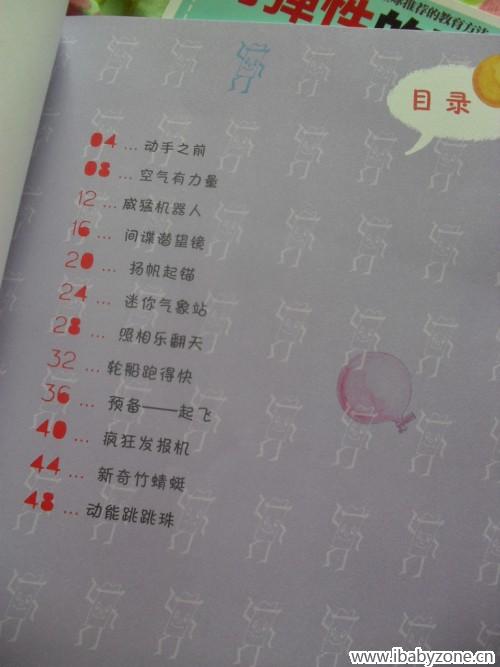 弹性的
推荐的教育方法
目录
04 ... 动手之前
08 ... 空气有力量
12 ... 威猛机器人
16 ... 间谍潜望镜
20 ... 扬帆起锚
24 ... 迷你气象站
28 ... 照相乐翻天
32 ... 轮船跑得快
36 ... 预备——起飞
40 ... 疯狂发报机
44 ... 新奇竹蜻蜓
48 ... 动能跳跳珠
www.ibabyzone.cn